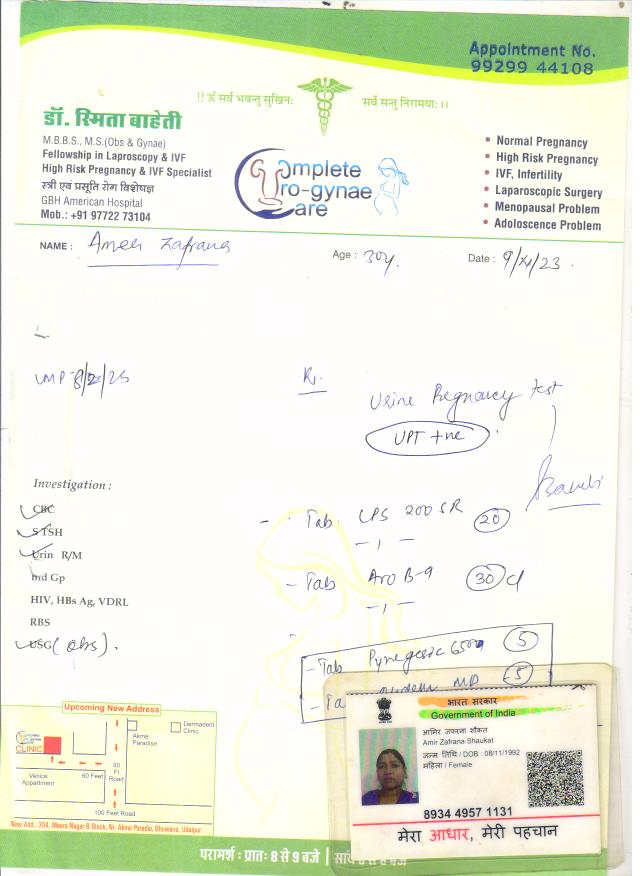 Appointment No.
99299 44108
!! ॐ सर्वे भवन्तु सुखिनः सर्वे सन्तु निरामयाः ।।
डॉ. स्मिता बाहेती
M.B.B.S., M.S.(Obs & Gynae)
Fellowship in Laproscopy & IVF
High Risk Pregnancy & IVF Specialist
स्त्री एवं प्रसूति रोग विशेषज्ञ
GBH American Hospital
Mob.: +91 97722 73104
Complete
Uro-gynae
Care
• Normal Pregnancy
• High Risk Pregnancy
• IVF, Infertility
• Laparoscopic Surgery
• Menopausal Problem
• Adoloscence Problem
NAME : Zafrana Age : 30y. Date :
LMP
Urine Pregnancy test
UPT +ve
Investigation :
CBC
S TSH
Urin R/M
Bld Gp
HIV, HBs Ag, VDRL
RBS
USG (Obs).
- Tab. 200 SR 20
- 1 -
- Tab B-9 30
- 1 -
- Tab 650 5
Upcoming New Address
CLINIC
Akme
Paradise
Dermadent
Clinic
Venice
Appartment
60 Feet
80
Ft
Road
100 Feet Road
New Add.: 304, Meera Nagar B Block, Nr. Akme Paradie, Bhuwana, Udaipur
परामर्श : प्रातः 8 से 9 बजे
भारत सरकार
Government of India
आमिर जफराना शौकत
Amir Zafrana Shaukat
जन्म तिथि / DOB : 08/11/1992
महिला / Female
8934 4957 1131
मेरा आधार, मेरी पहचान